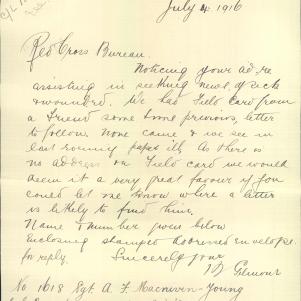 July 4. 1916
Red Cross Bureau.
Noticing your ad, re
assisting in seeking news of sick
& wounded. We had Field Card from
a Friend some time previous, letter
to follow. None came & we see in
last evening paper ill. As there is
no address on Field card we would
deem it a very great favour if you
could let me know where a letter
is likely to find him.
Name & number given below
Enclosing stamped addressed envelope
for reply.
Sincerely yours
Gilmour
No 1618 Sgt A F Macniven-Young